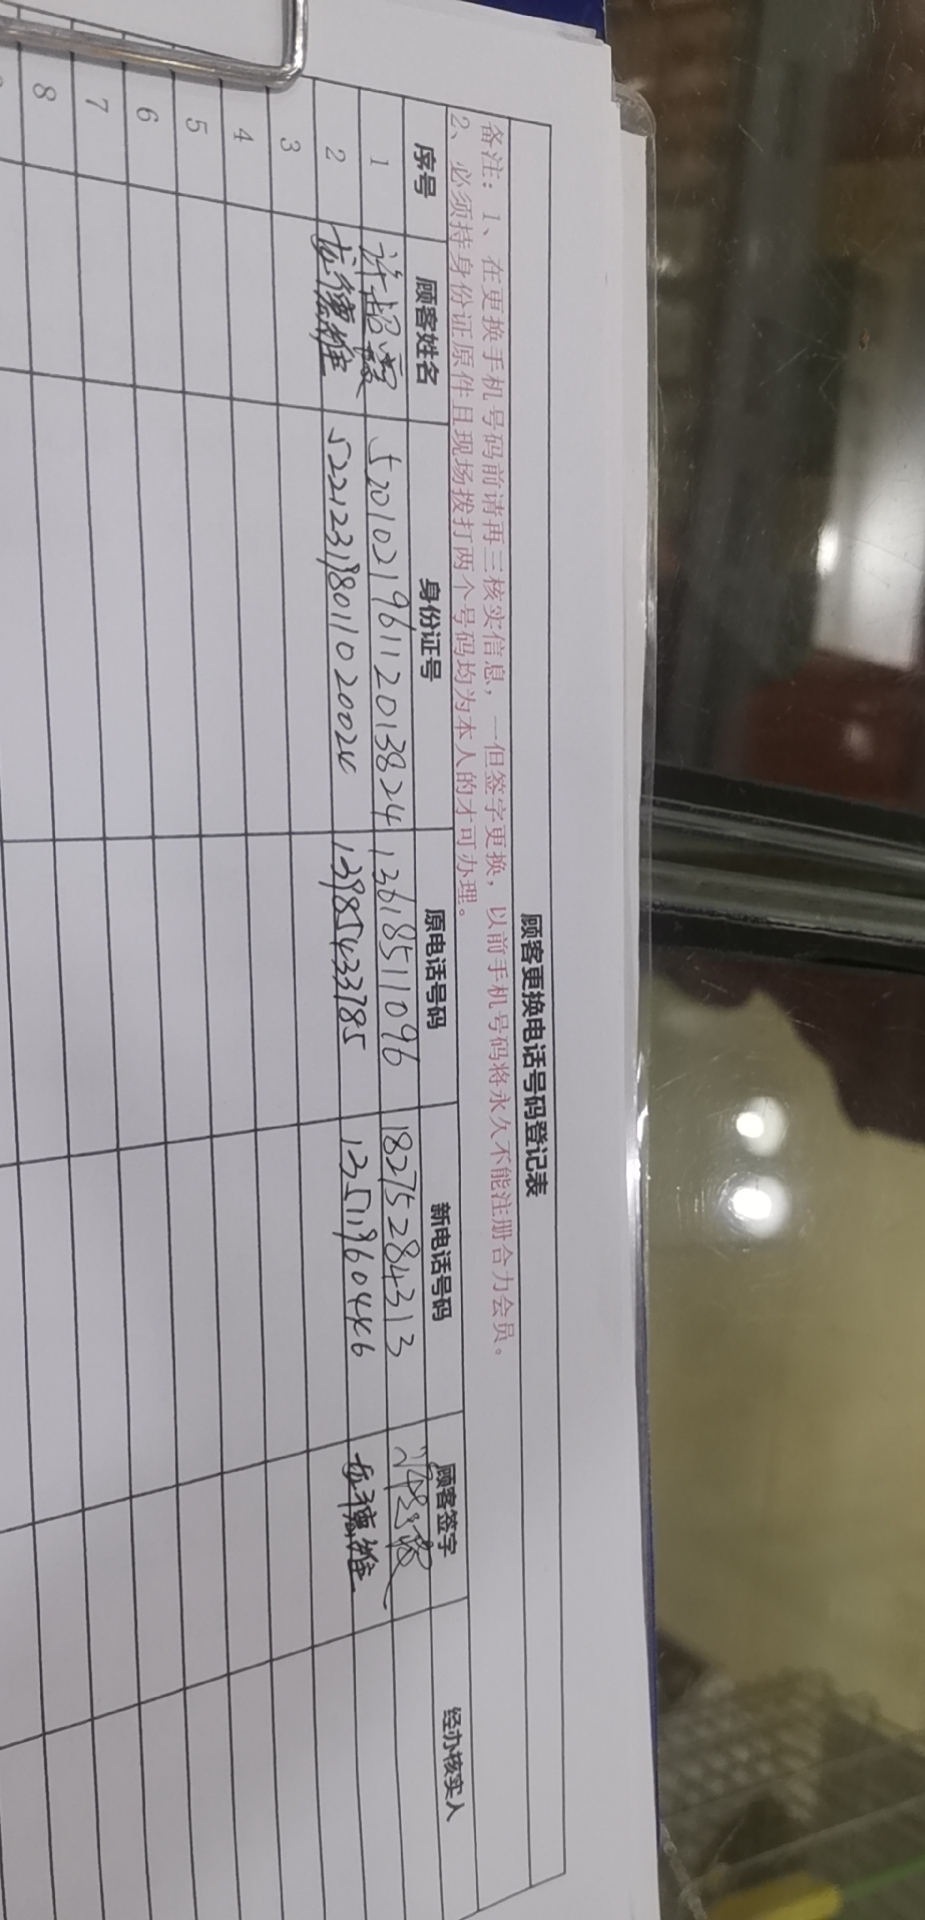 顾客更换电话号码登记表
备注：1、在更换手机号码前请再三核实信息，一但签字更换，以前手机号码将永久不能注册合力会员。
2、必须持身份证原件且现场拨打两个号码均为本人的才可办理。
序号 顾客姓名 身份证号 原电话号码 新电话号码 顾客签字 经办核实人
1 520102196112013824 13618511096 18275284313
2 龙德雄 13985433785 13511960446 龙德雄
3
4
5
6
7
8